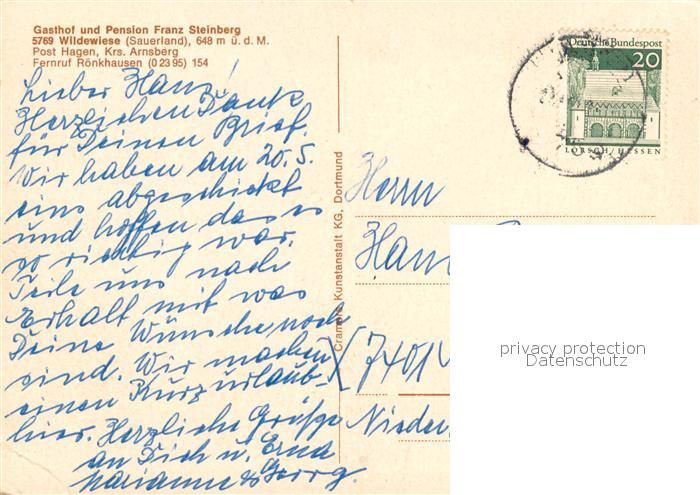 Gasthof und Pension Franz Steinberg
5769 Wildewiese (Sauerland), 648 m ü. d. M.
Post Hagen, Krs. Arnsberg
Fernruf Rönkhausen (0 23 95) 154
Lieber Hans!
Herzlichen Dank
für Deinen Brief.
Wir haben am 20.5.
eins abgeschickt
und hoffen das es
so richtig war.
Teile uns nach
Erhalt mit was
Deine Wünsche noch
sind. Wir machen
einen Kurzurlaub
hier. Herzliche Grüße
an Dich u. Erna
Marianne & Georg.
Cramers Kunstanstalt KG, Dortmund
Deutsche Bundespost
20
LORSCH/HESSEN
Herrn
Han
7401
Nieder
privacy protection
Datenschutz